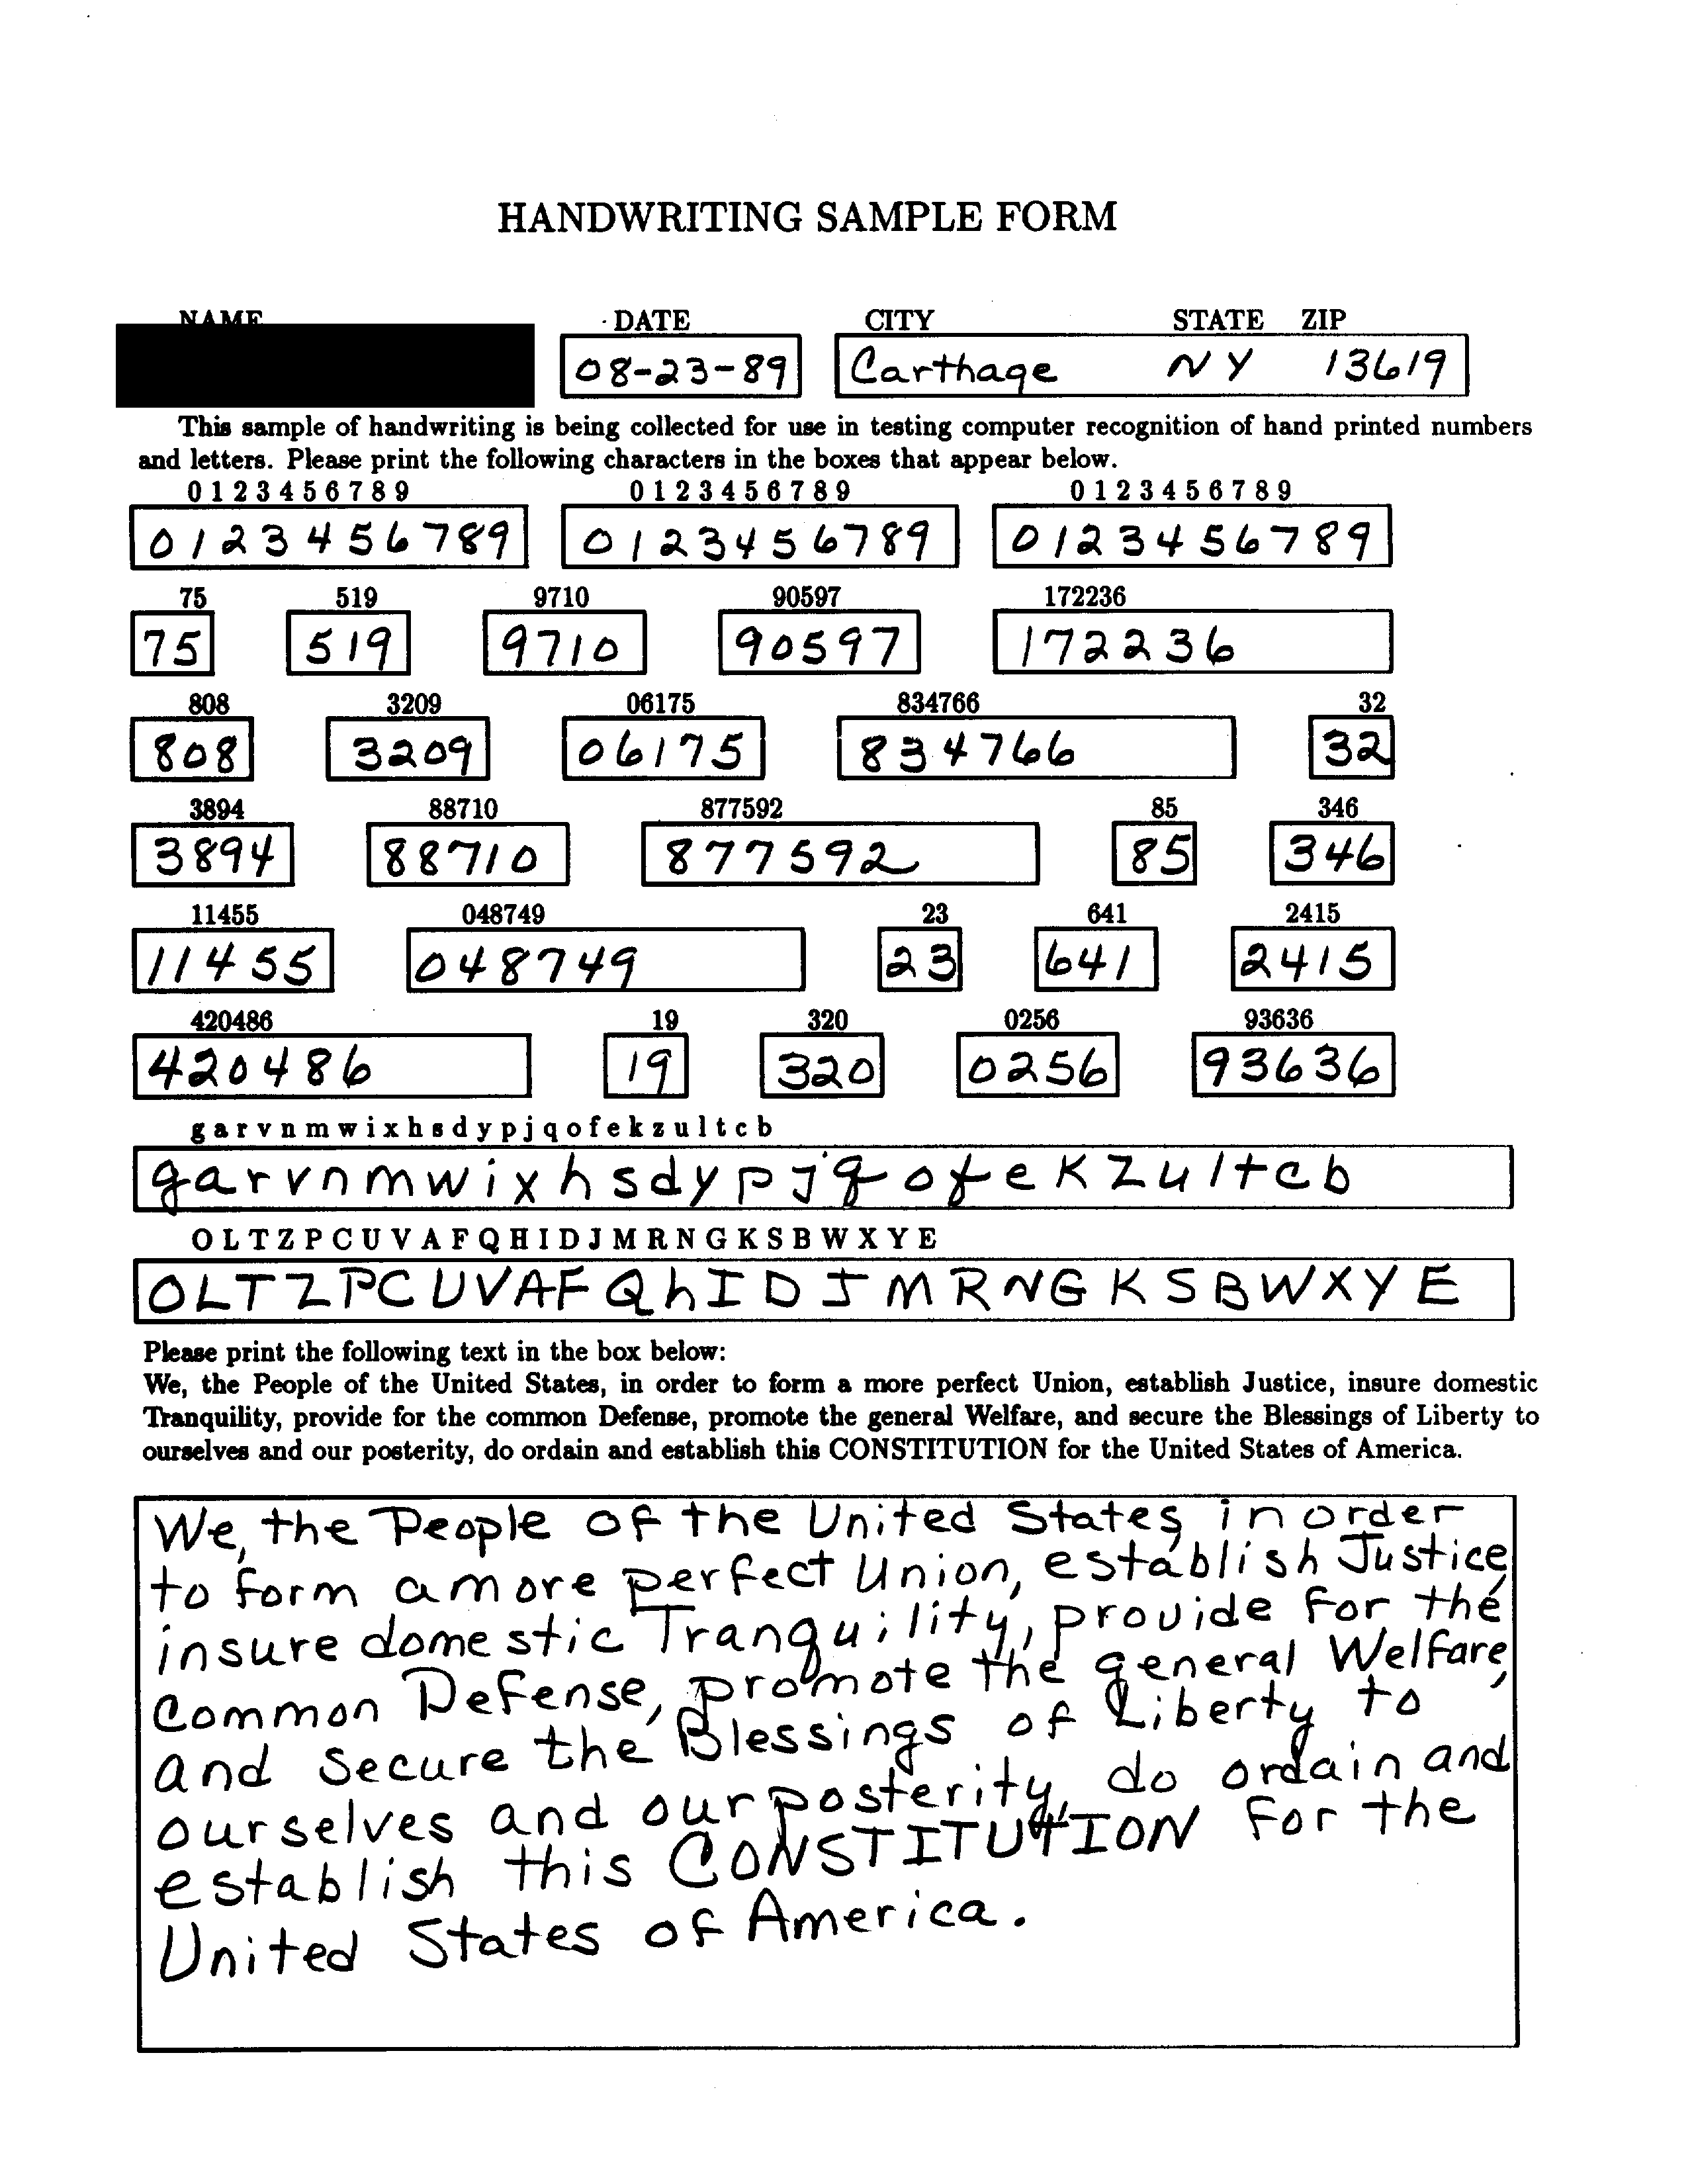 HANDWRITING SAMPLE FORM
NAME DATE CITY STATE ZIP
08-23-89 Carthage NY 13619
This sample of handwriting is being collected for use in testing computer recognition of hand printed numbers
and letters. Please print the following characters in the boxes that appear below.
0 1 2 3 4 5 6 7 8 9 0 1 2 3 4 5 6 7 8 9 0 1 2 3 4 5 6 7 8 9
0123456789 0123456789 0123456789
75 519 9710 90597 172236
75 519 9710 90597 172236
808 3209 06175 834766 32
808 3209 06175 834766 32
3894 88710 877592 85 346
3894 88710 877592 85 346
11455 048749 23 641 2415
11455 048749 23 641 2415
420486 19 320 0256 93636
420486 19 320 0256 93636
g a r v n m w i x h s d y p j q o f e k z u l t c b
garvnmwixhsdypjqofekzultcb
O L T Z P C U V A F Q H I D J M R N G K S B W X Y E
OLTZPCUVAFQhIDJMRNGKSBWXYE
Please print the following text in the box below:
We, the People of the United States, in order to form a more perfect Union, establish Justice, insure domestic
Tranquility, provide for the common Defense, promote the general Welfare, and secure the Blessings of Liberty to
ourselves and our posterity, do ordain and establish this CONSTITUTION for the United States of America.
We, the People of the United States, in order
to form a more perfect Union, establish Justice,
insure domestic Tranquility, provide for the
common Defense, promote the general Welfare,
and secure the Blessings of Liberty to
ourselves and our posterity, do ordain and
establish this CONSTITUTION for the
United States of America.